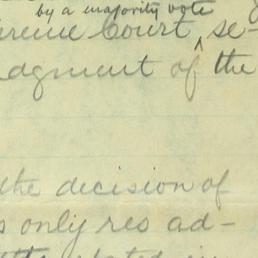 by a majority vote
reme Court, se-
dgment of ^ the
the decision of
s only res ad-